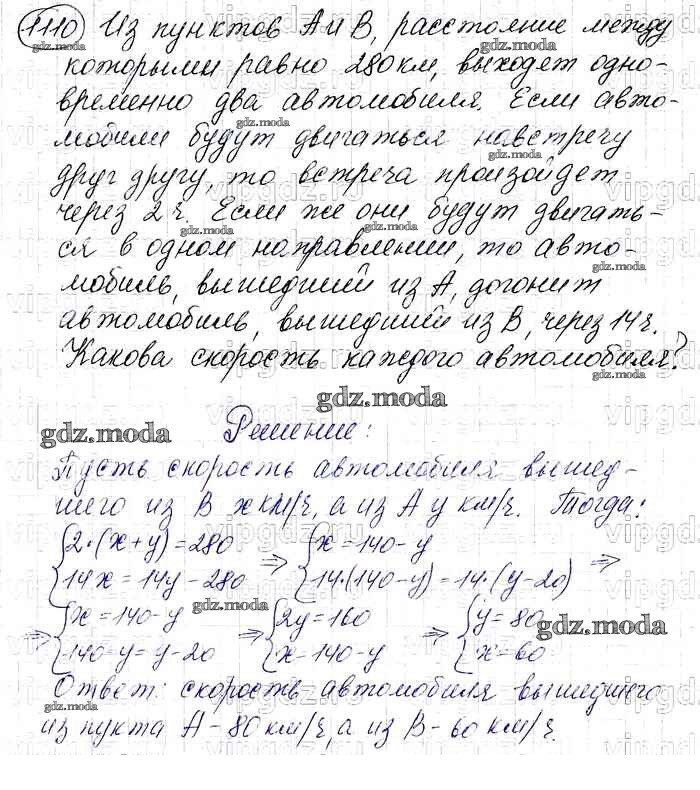 1110 Из пунктов А и В, расстояние между
которыми равно 280 км, выходят одно-
временно два автомобиля. Если авто-
мобили будут двигаться навстречу
друг другу, то встреча произойдет
через 2 ч. Если же они будут двигать-
ся в одном направлении, то авто-
мобиль, вышедший из А, догонит
автомобиль, вышедший из В, через 14 ч.
Какова скорость каждого автомобиля?
gdz.moda
gdz.moda Решение:
Пусть скорость автомобиля вышед-
шего из В x км/ч, а из А y км/ч. Тогда:
{2·(x+y)=280 => {x=140-y =>
{14x=14y-280 {14·(140-y)=14·(y-20)
=> {x=140-y => {2y=160 => {y=80
{140-y=y-20 {x=140-y {x=60
gdz.moda
Ответ: скорость автомобиля вышедшего
из пункта А - 80 км/ч, а из В - 60 км/ч.